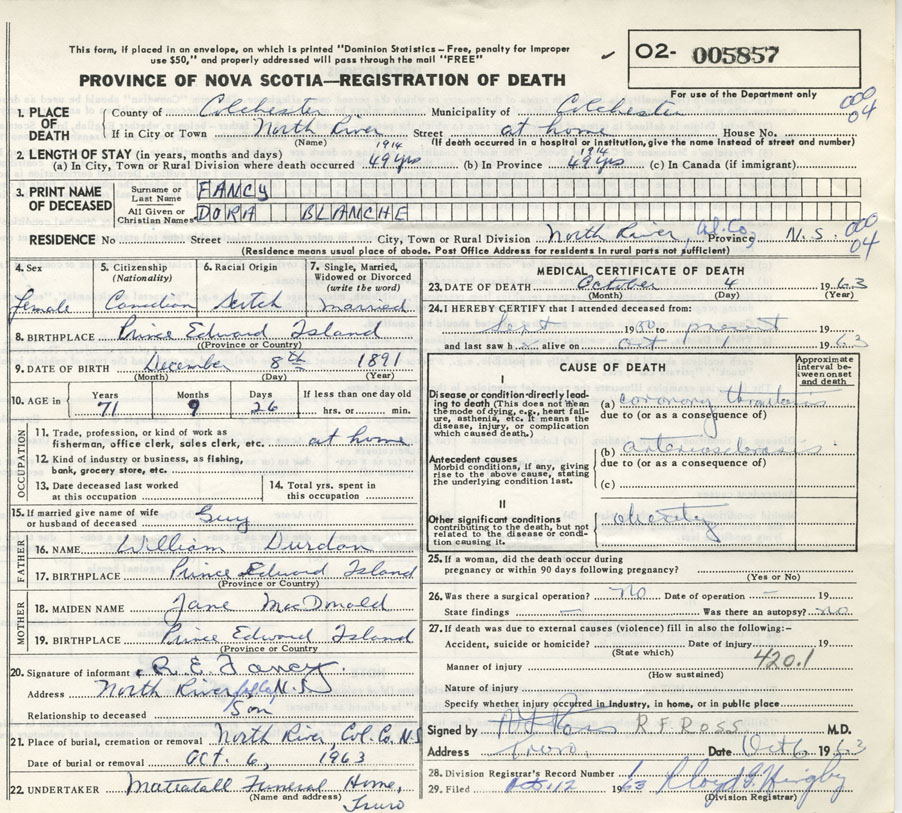 This form, if placed in an envelope, on which is printed "Dominion Statistics – Free, penalty for improper
use $50," and properly addressed will pass through the mail "FREE"
✓ O2- 005857
For use of the Department only
PROVINCE OF NOVA SCOTIA—REGISTRATION OF DEATH
1. PLACE OF DEATH { County of Colchester Municipality of Colchester 000 04
If in City or Town North River Street at home House No.
(Name) (If death occurred in a hospital or institution, give the name instead of street and number)
2. LENGTH OF STAY (in years, months and days) 1914 1914
(a) In City, Town or Rural Division where death occurred 49 yrs (b) In Province 49 yrs (c) In Canada (if immigrant)
3. PRINT NAME OF DECEASED { Surname or Last Name FANCY
All Given or Christian Names DORA BLANCHE
RESIDENCE No Street City, Town or Rural Division North River, Col. Co., Province N.S. 000 04
(Residence means usual place of abode. Post Office Address for residents in rural parts not sufficient)
4. Sex 5. Citizenship (Nationality) 6. Racial Origin 7. Single, Married, Widowed or Divorced (write the word)
female Canadian Scotch married
8. BIRTHPLACE Prince Edward Island
(Province or Country)
9. DATE OF BIRTH December 8th 1891
(Month) (Day) (Year)
10. AGE in { Years 71 Months 9 Days 26 If less than one day old hrs. or min.
OCCUPATION
11. Trade, profession, or kind of work as fisherman, office clerk, sales clerk, etc. at home
12. Kind of industry or business, as fishing, bank, grocery store, etc.
13. Date deceased last worked at this occupation 14. Total yrs. spent in this occupation
15. If married give name of wife or husband of deceased Guy
FATHER
16. NAME William Durdon
17. BIRTHPLACE Prince Edward Island
(Province or Country)
MOTHER
18. MAIDEN NAME Jane MacDonald
19. BIRTHPLACE Prince Edward Island
(Province or Country
20. Signature of informant R. E. Fancy.
Address North River N.S
Relationship to deceased Son
21. Place of burial, cremation or removal North River, Col. Co. N.S
Date of burial or removal OCT. 6, 1963
22. UNDERTAKER Mattatall Funeral Home,
(Name and address) Truro
MEDICAL CERTIFICATE OF DEATH
23. DATE OF DEATH October 4 1963
(Month) (Day) (Year)
24. I HEREBY CERTIFY that I attended deceased from:
Sept 1950 to present 19
and last saw h alive on Oct 1 1963
CAUSE OF DEATH
Approximate interval between onset and death
I
Disease or condition directly leading to death (This does not mean the mode of dying, e.g., heart failure, asthenia, etc. It means the disease, injury, or complication which caused death.)
(a) coronary thrombosis
due to (or as a consequence of)
Antecedent causes
Morbid conditions, if any, giving rise to the above cause, stating the underlying condition last.
(b) arteriosclerosis
due to (or as a consequence of)
(c)
II
Other significant conditions contributing to the death, but not related to the disease or condition causing it.
obesity
25. If a woman, did the death occur during pregnancy or within 90 days following pregnancy?
(Yes or No)
26. Was there a surgical operation? no Date of operation –
State findings – Was there an autopsy? no
27. If death was due to external causes (violence) fill in also the following:–
Accident, suicide or homicide? Date of injury 19
(State which)
Manner of injury 420.1
(How sustained)
Nature of injury
Specify whether injury occurred in industry, in home, or in public place
Signed by R F ROSS M.D.
Address Truro. Date Oct 6 1963
28. Division Registrar's Record Number
29. Filed Oct. 12 1963
(Division Registrar)